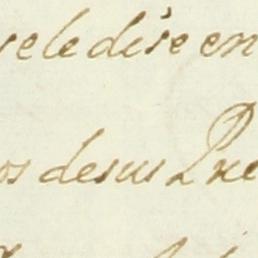 se le dize en
os de sus Pre